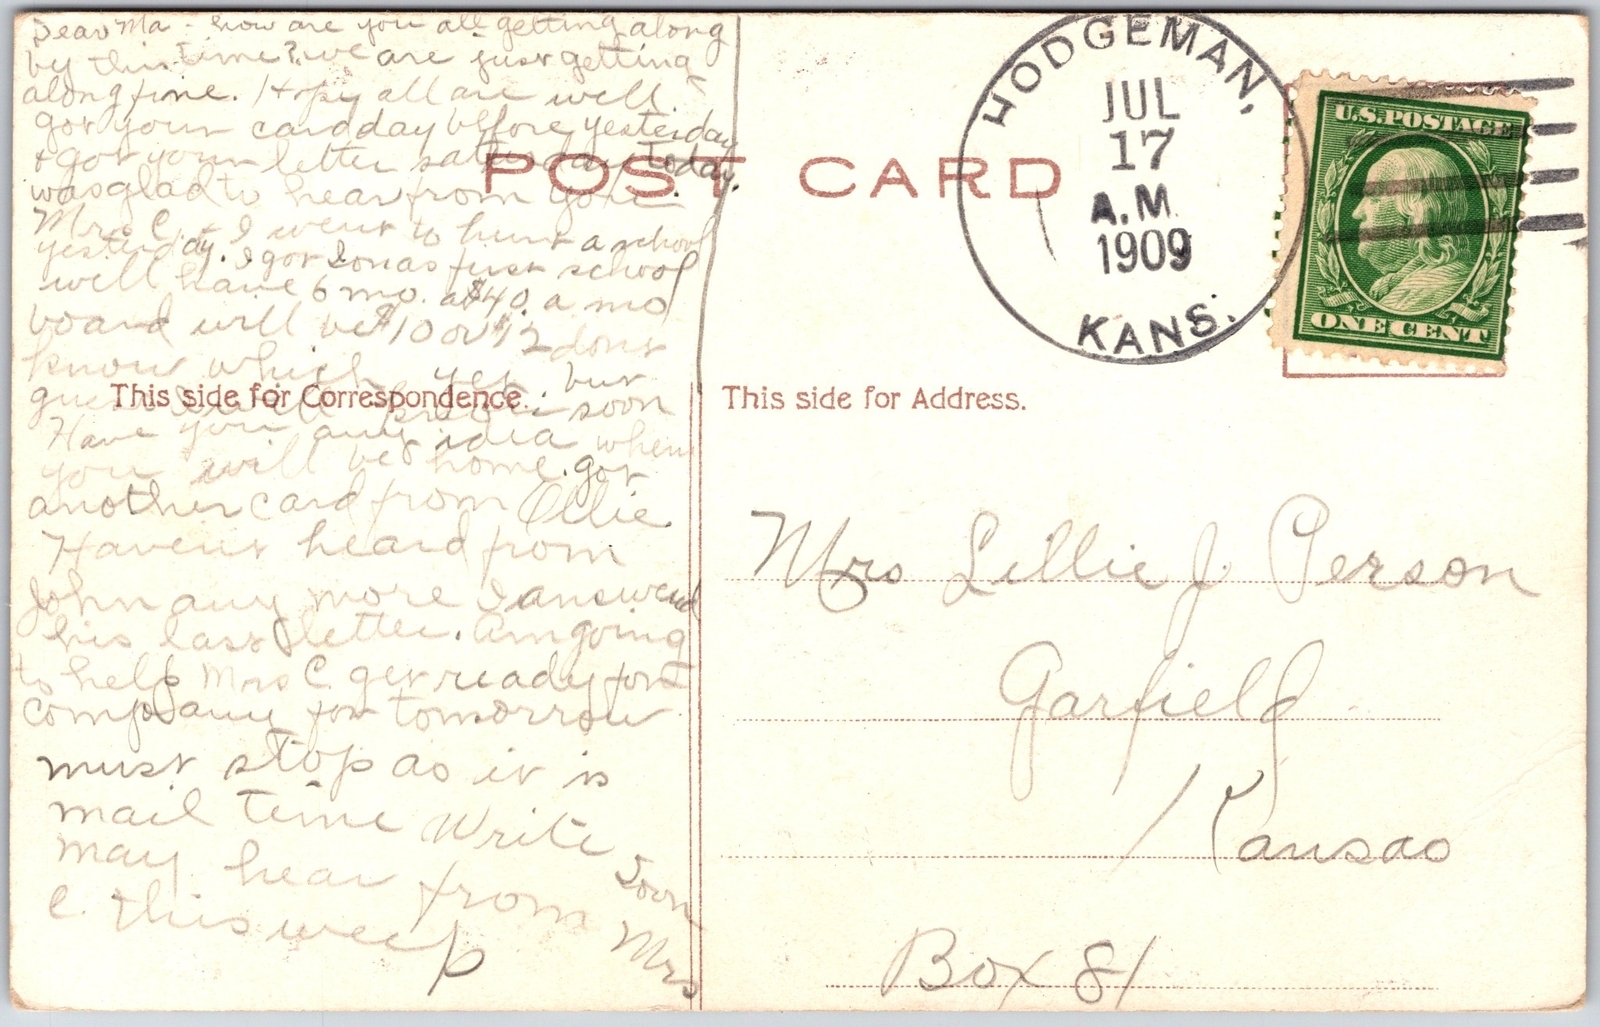 Dear Ma - How are you all getting along
by this time? we are just getting
along fine. Hope all are well.
got your card day before yesterday
+ got your letter saturday today.
was glad to hear from you.
Mrs. C. + I went to hunt a school
yesterday. I got Jonas first school
will have 6 mo. at $40. a mo
board will be $10 or $12 dont
know which yet but
guess will know soon
Have you any idea when
you will be home. got
another card from Ollie
Havent heard from
John any more I answerd
his last letter. Am going
to help Mrs C. get ready for
company for tomorrow
must stop as it is
mail time Write Soon
may hear from Mrs
C. this week
POST CARD
This side for Correspondence.
This side for Address.
HODGEMAN,
JUL
17
A.M.
1909
KANS.
U.S. POSTAGE
ONE CENT
Mrs Lillie J. Person
Garfield
Kansas
Box 81